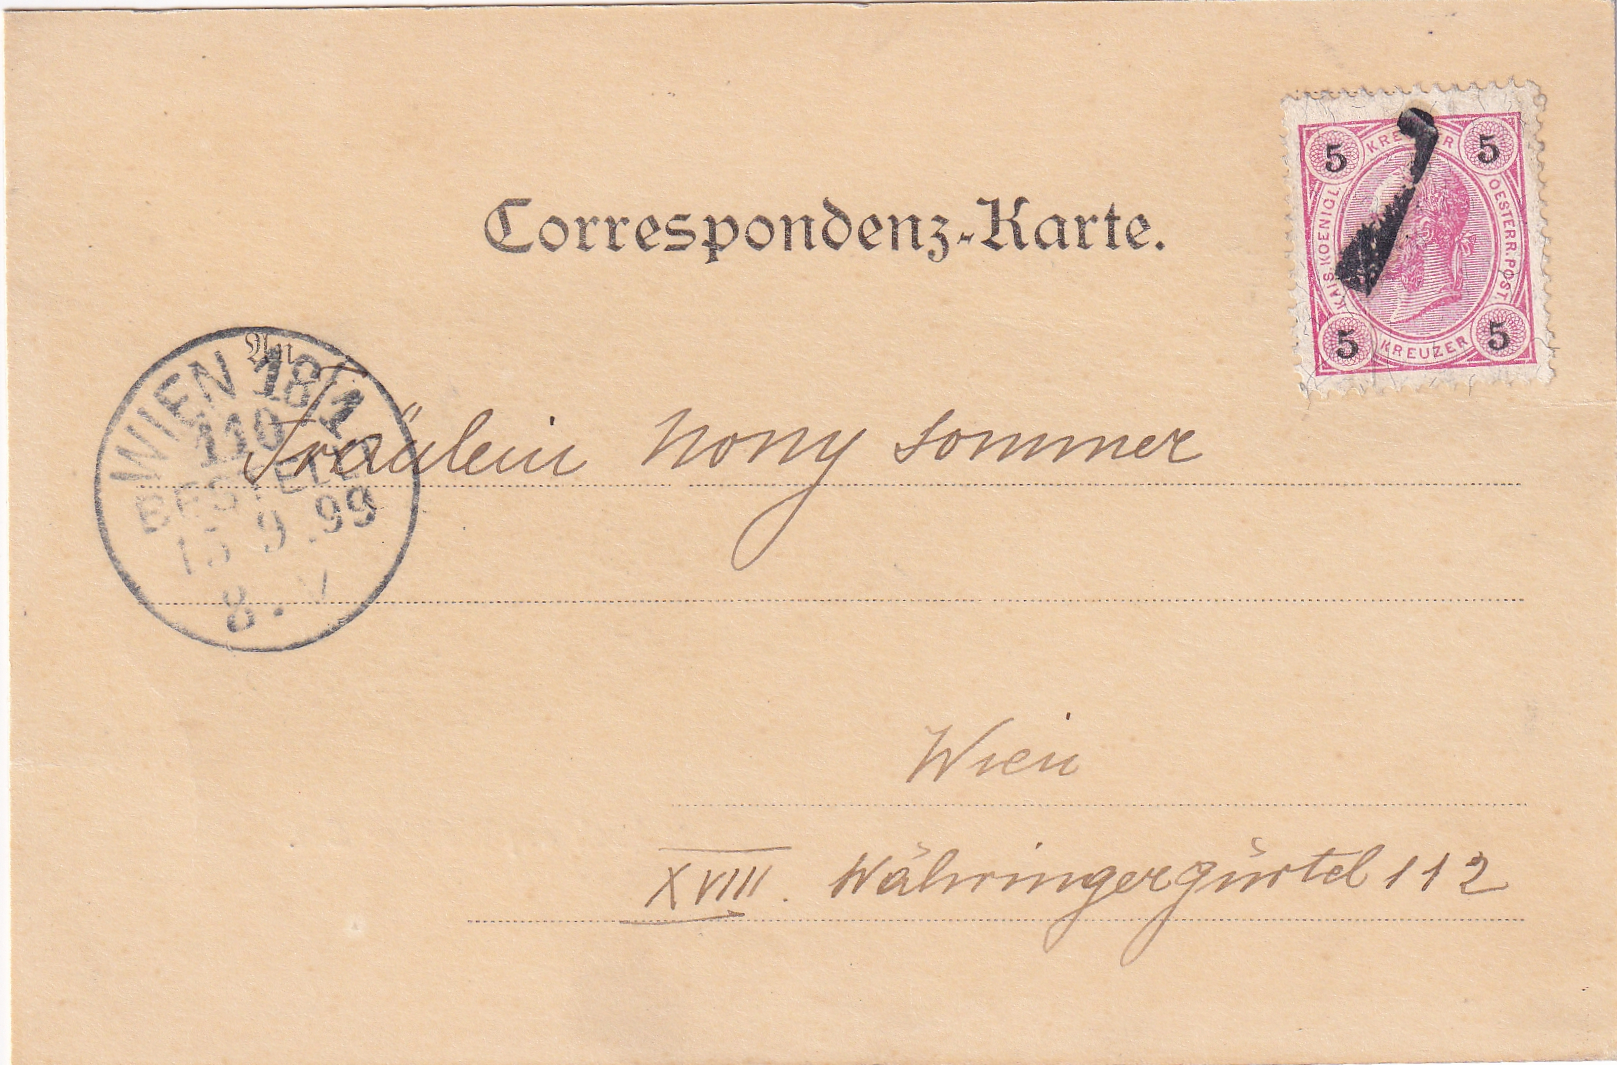 Correspondenz-Karte.
KREUZER
5 5
KAIS. KOENIGL. OESTERR. POST.
5 5
KREUZER
An
WIEN 18/1
110
BESTELLT
9.99
8.V
Fräulein Nony Sommer
Wien
XVIII. Währingergürtel 112